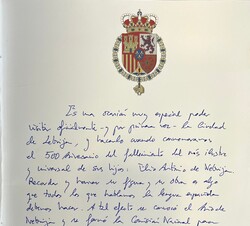 Es una ocasión muy especial poder
visitar oficialmente -y por primera vez- la Ciudad
de Lebrija, y hacerlo cuando conmemoramos
el 500 Aniversario del fallecimiento del más ilustre
y universal de sus hijos: Elio Antonio de Nebrija
Recordar y honrar su figura y su obra es algo
que todos los que hablamos la lengua española
debemos hacer. A tal efecto se convocó el Año de
Nebrija y se formó la Comisión Nacional para